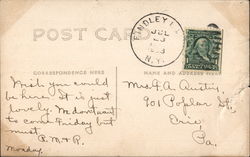 POST CARD
FINDLEY L
JUL
N.Y.
CORRESPONDENCE HERE
NAME AND ADDRESS HERE
Wish you could
be here. It is just
lovely. We dont want
to come Friday but
must.
Monday.
Mrs. F. A. Austin,
901 Poplar St.
Erie,
Pa.